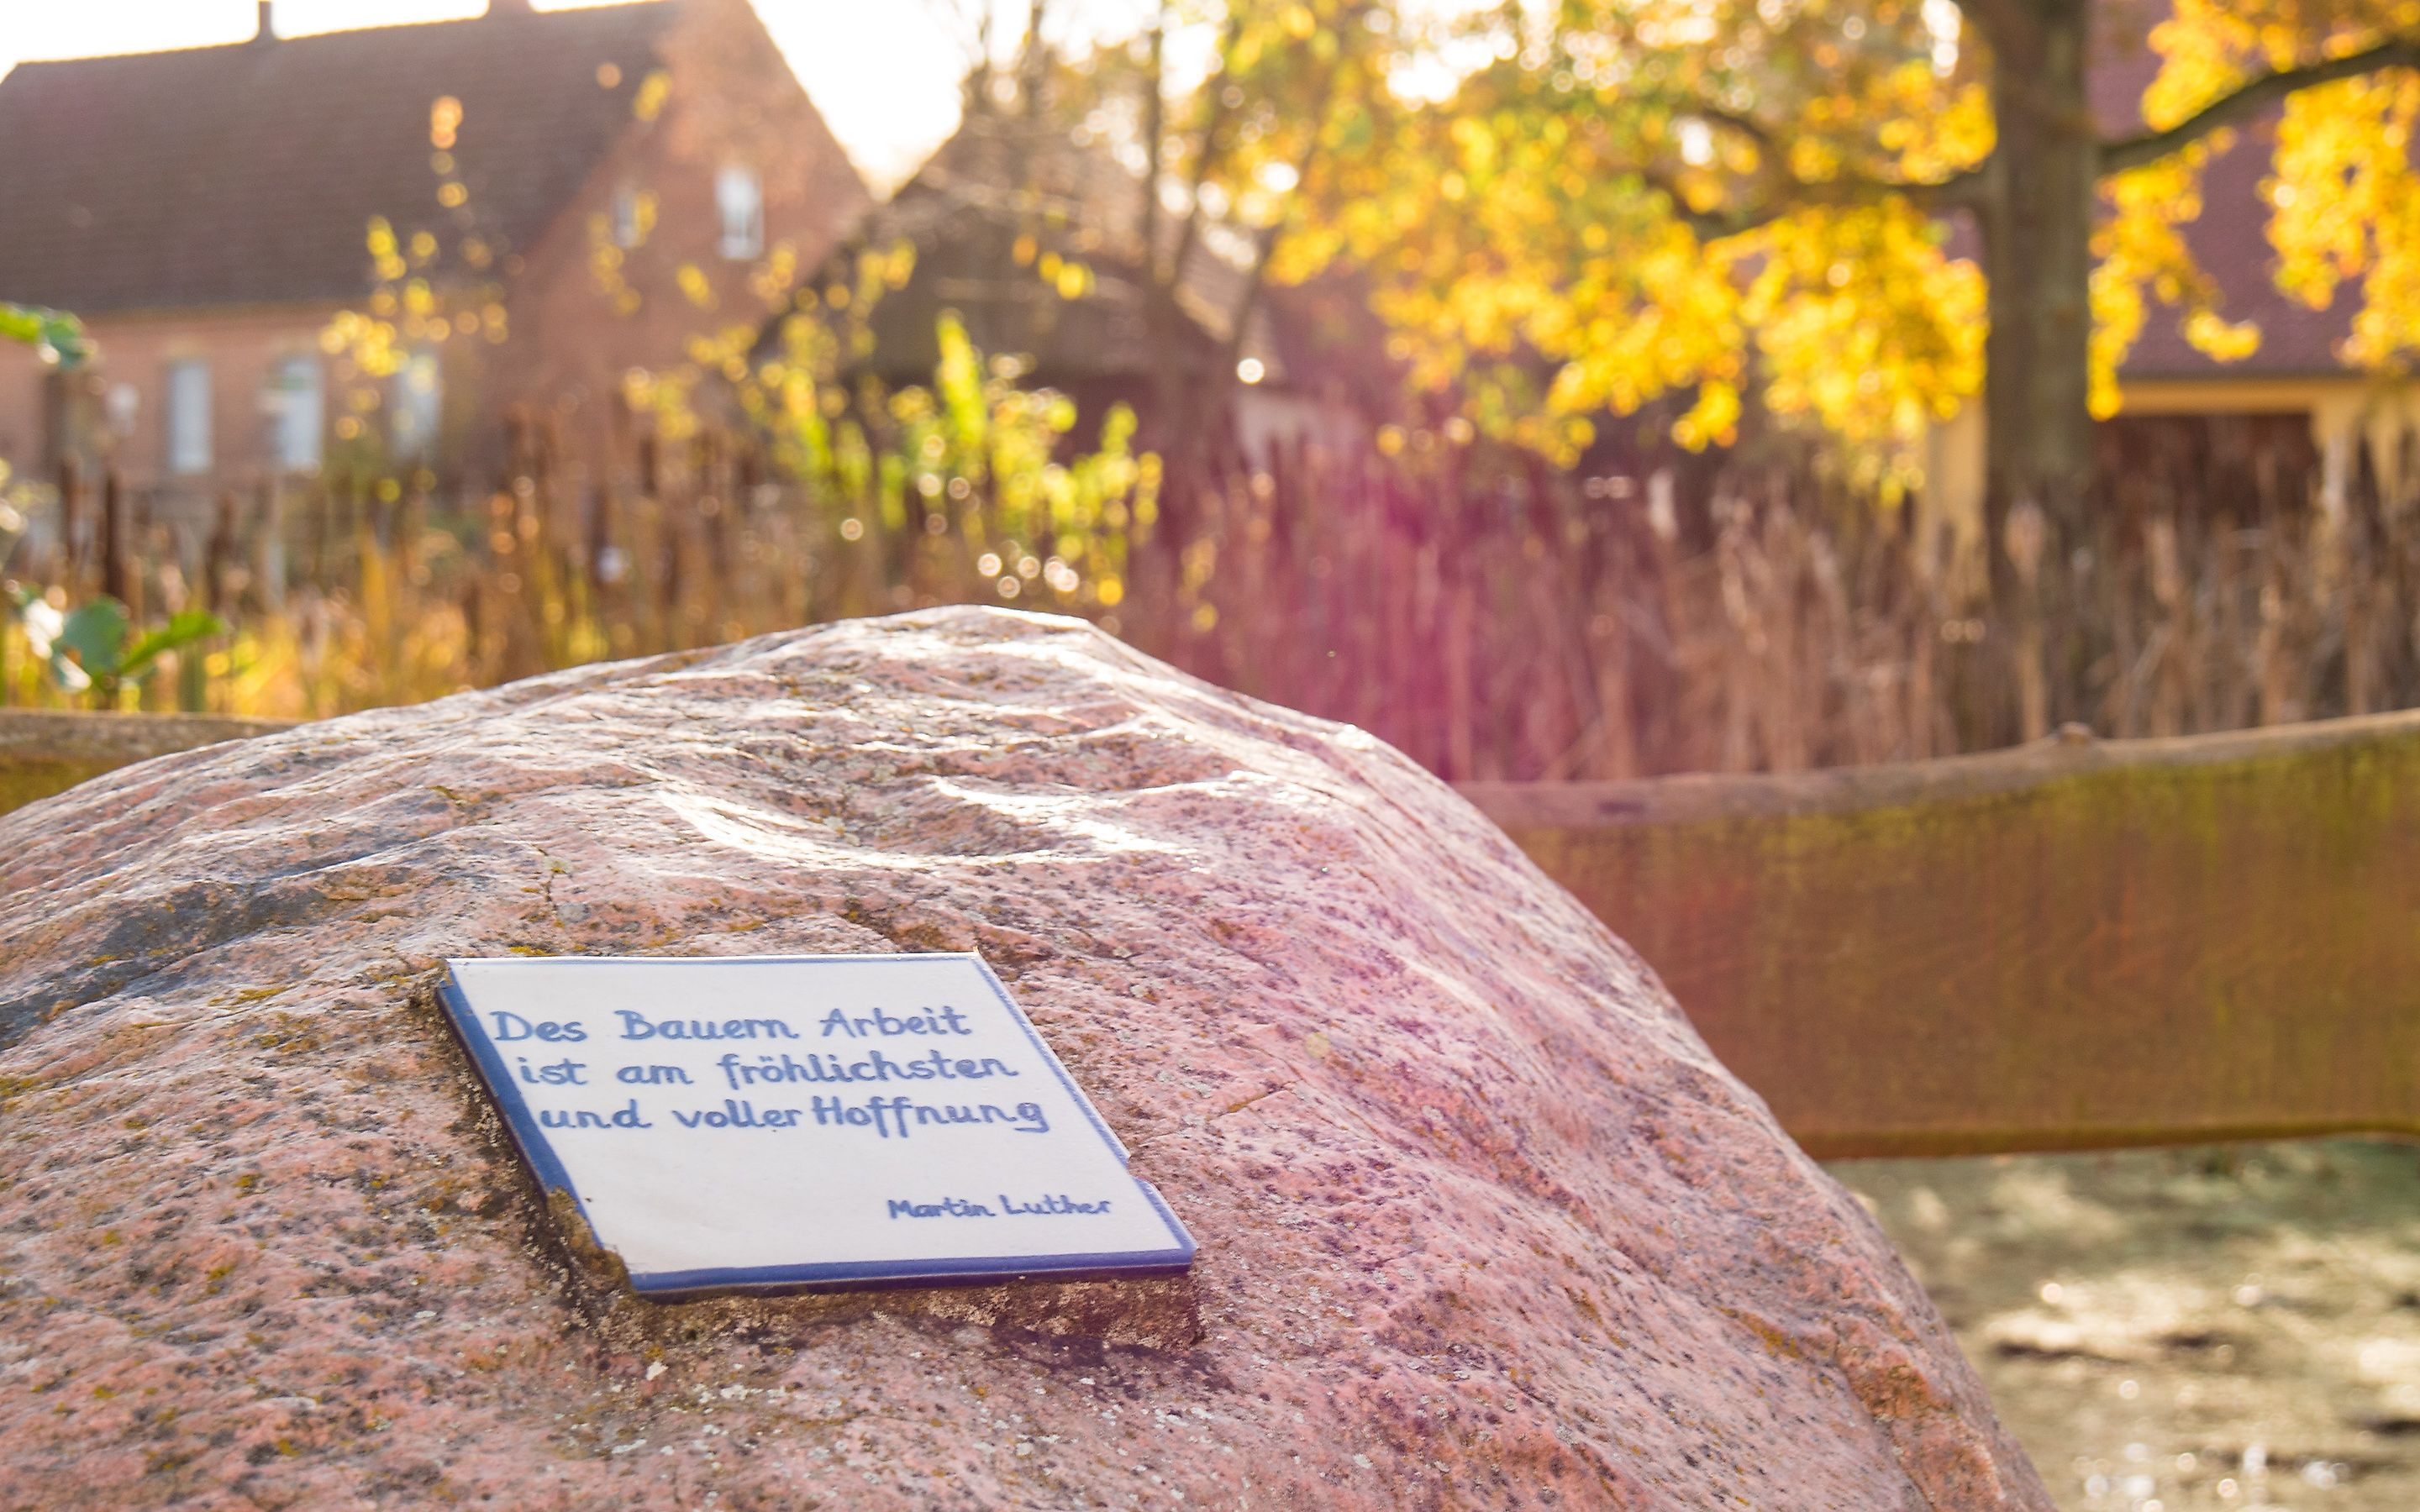 Des Bauern Arbeit
ist am fröhlichsten
und voller Hoffnung
Martin Luther